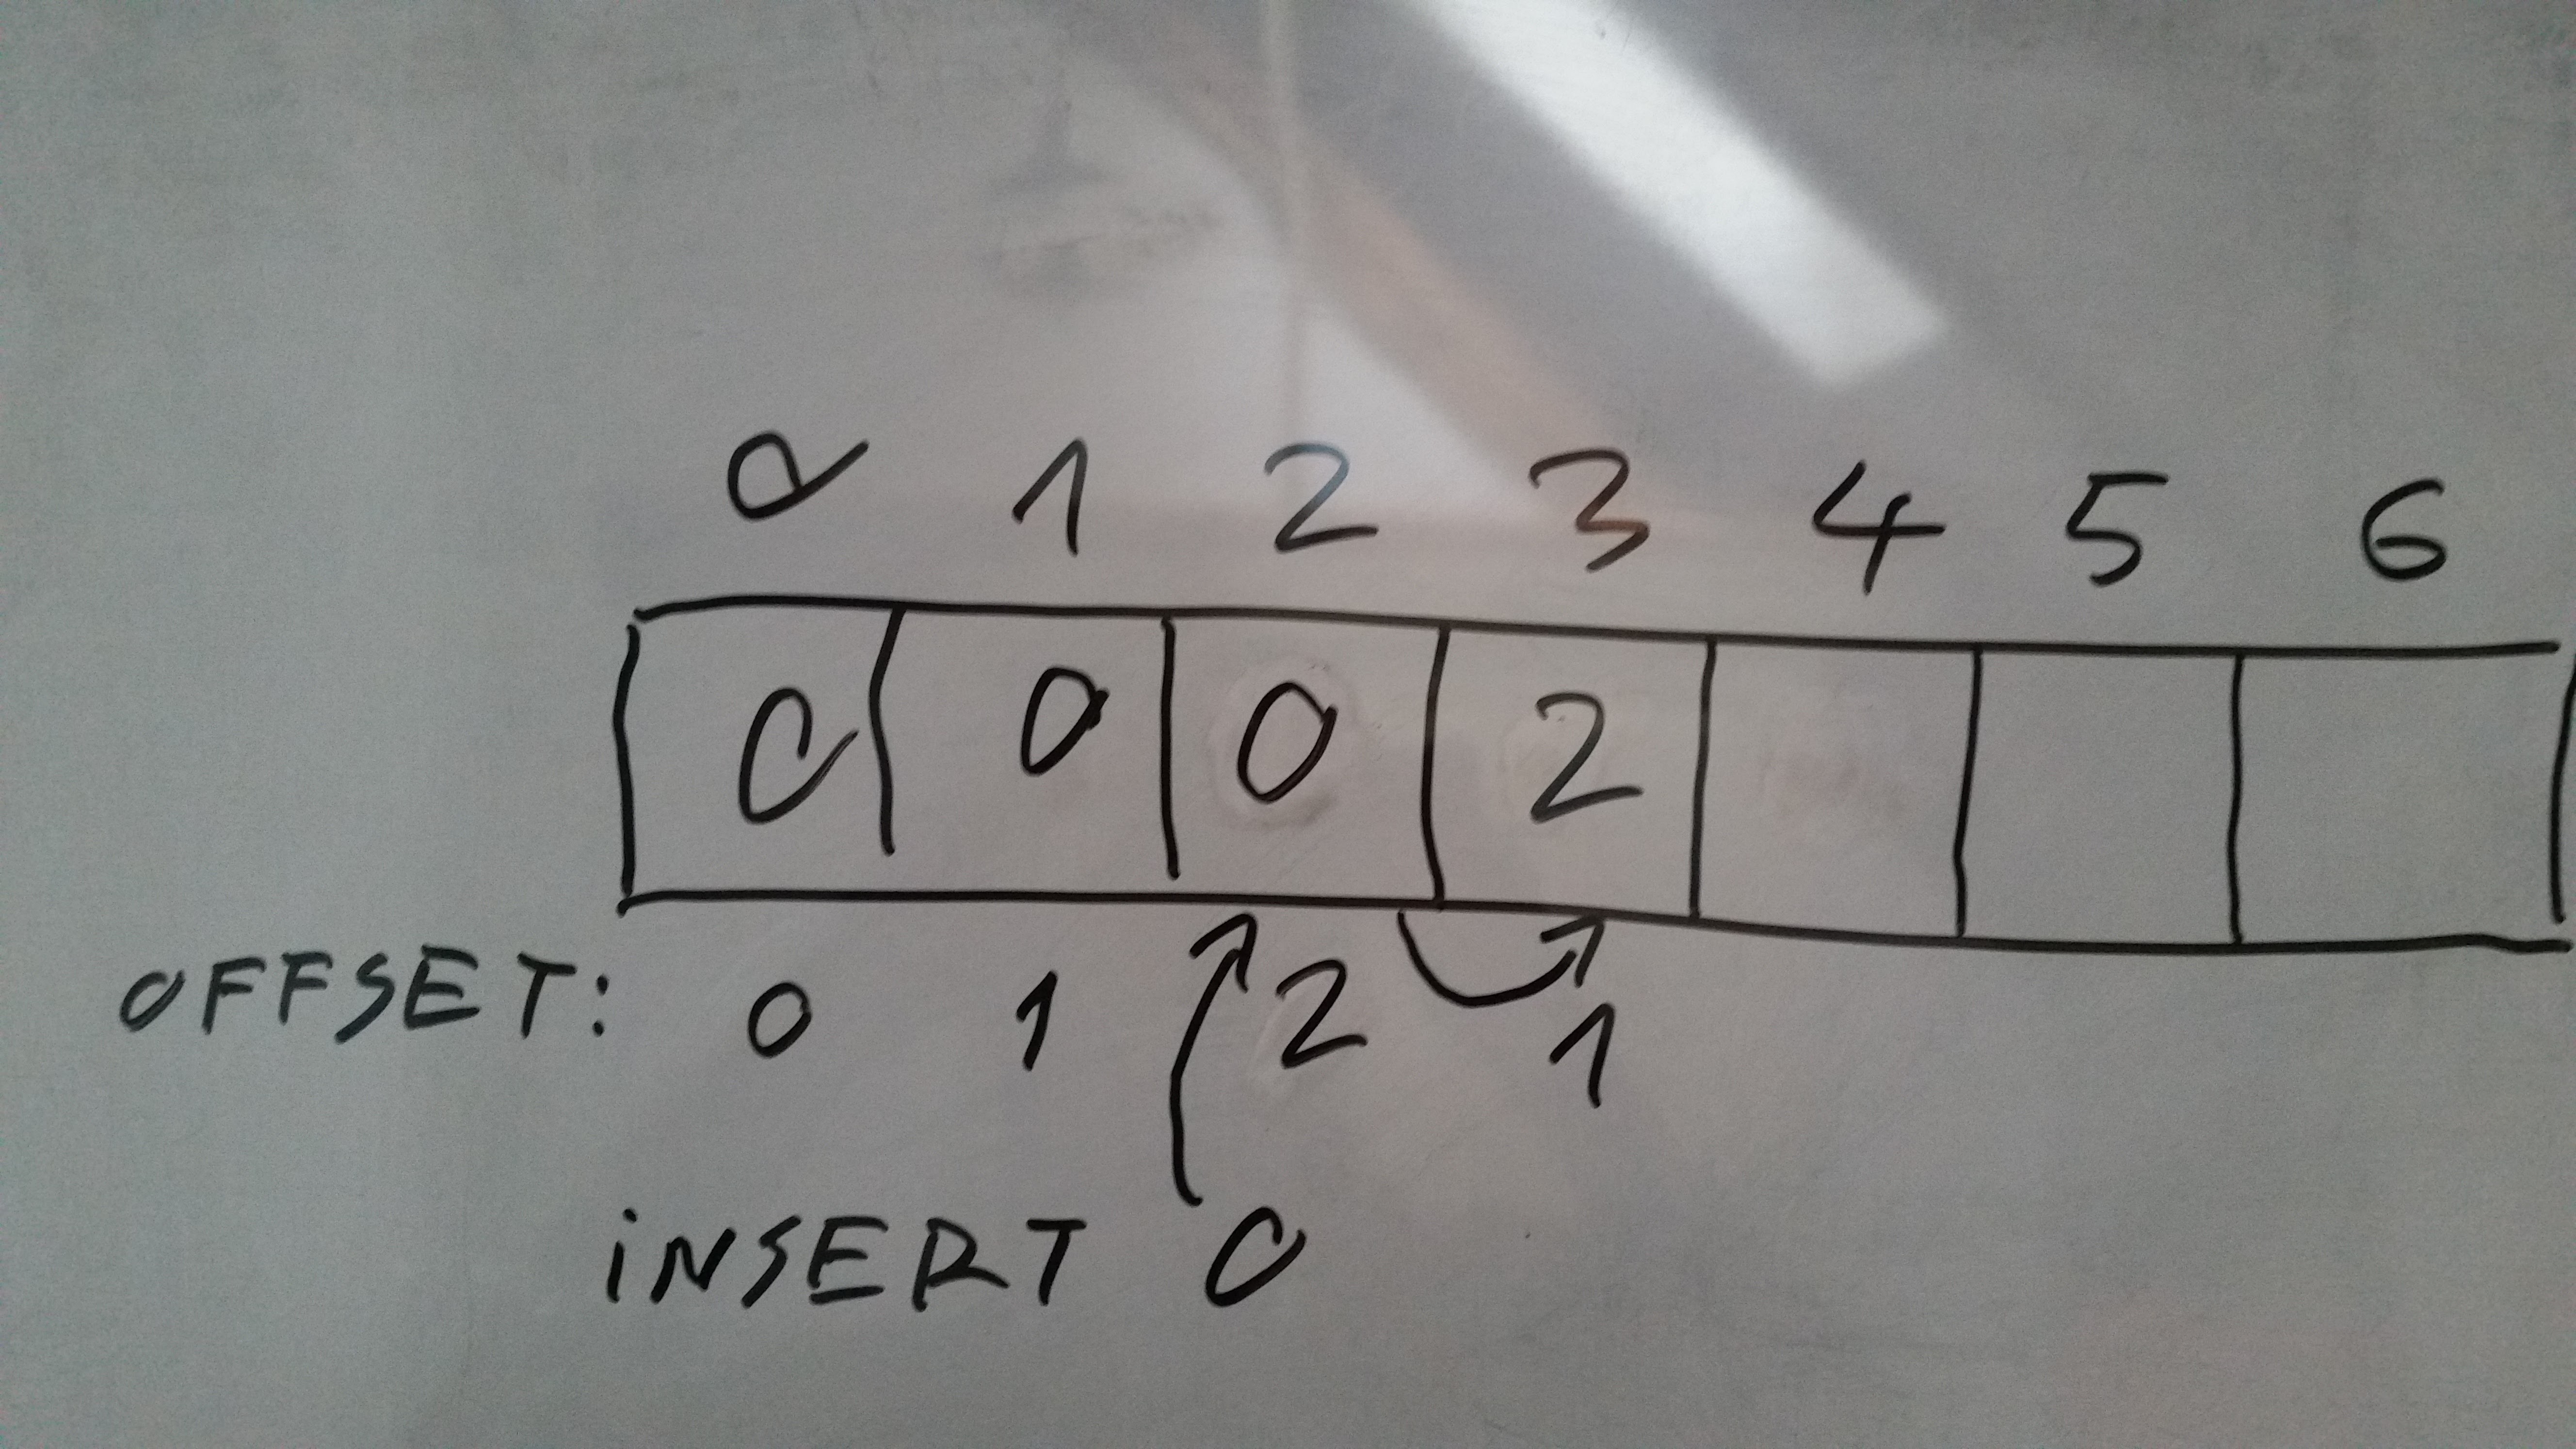 0 1 2 3 4 5 6
0 0 0 2
OFFSET: 0 1 2 1
iNSERT 0